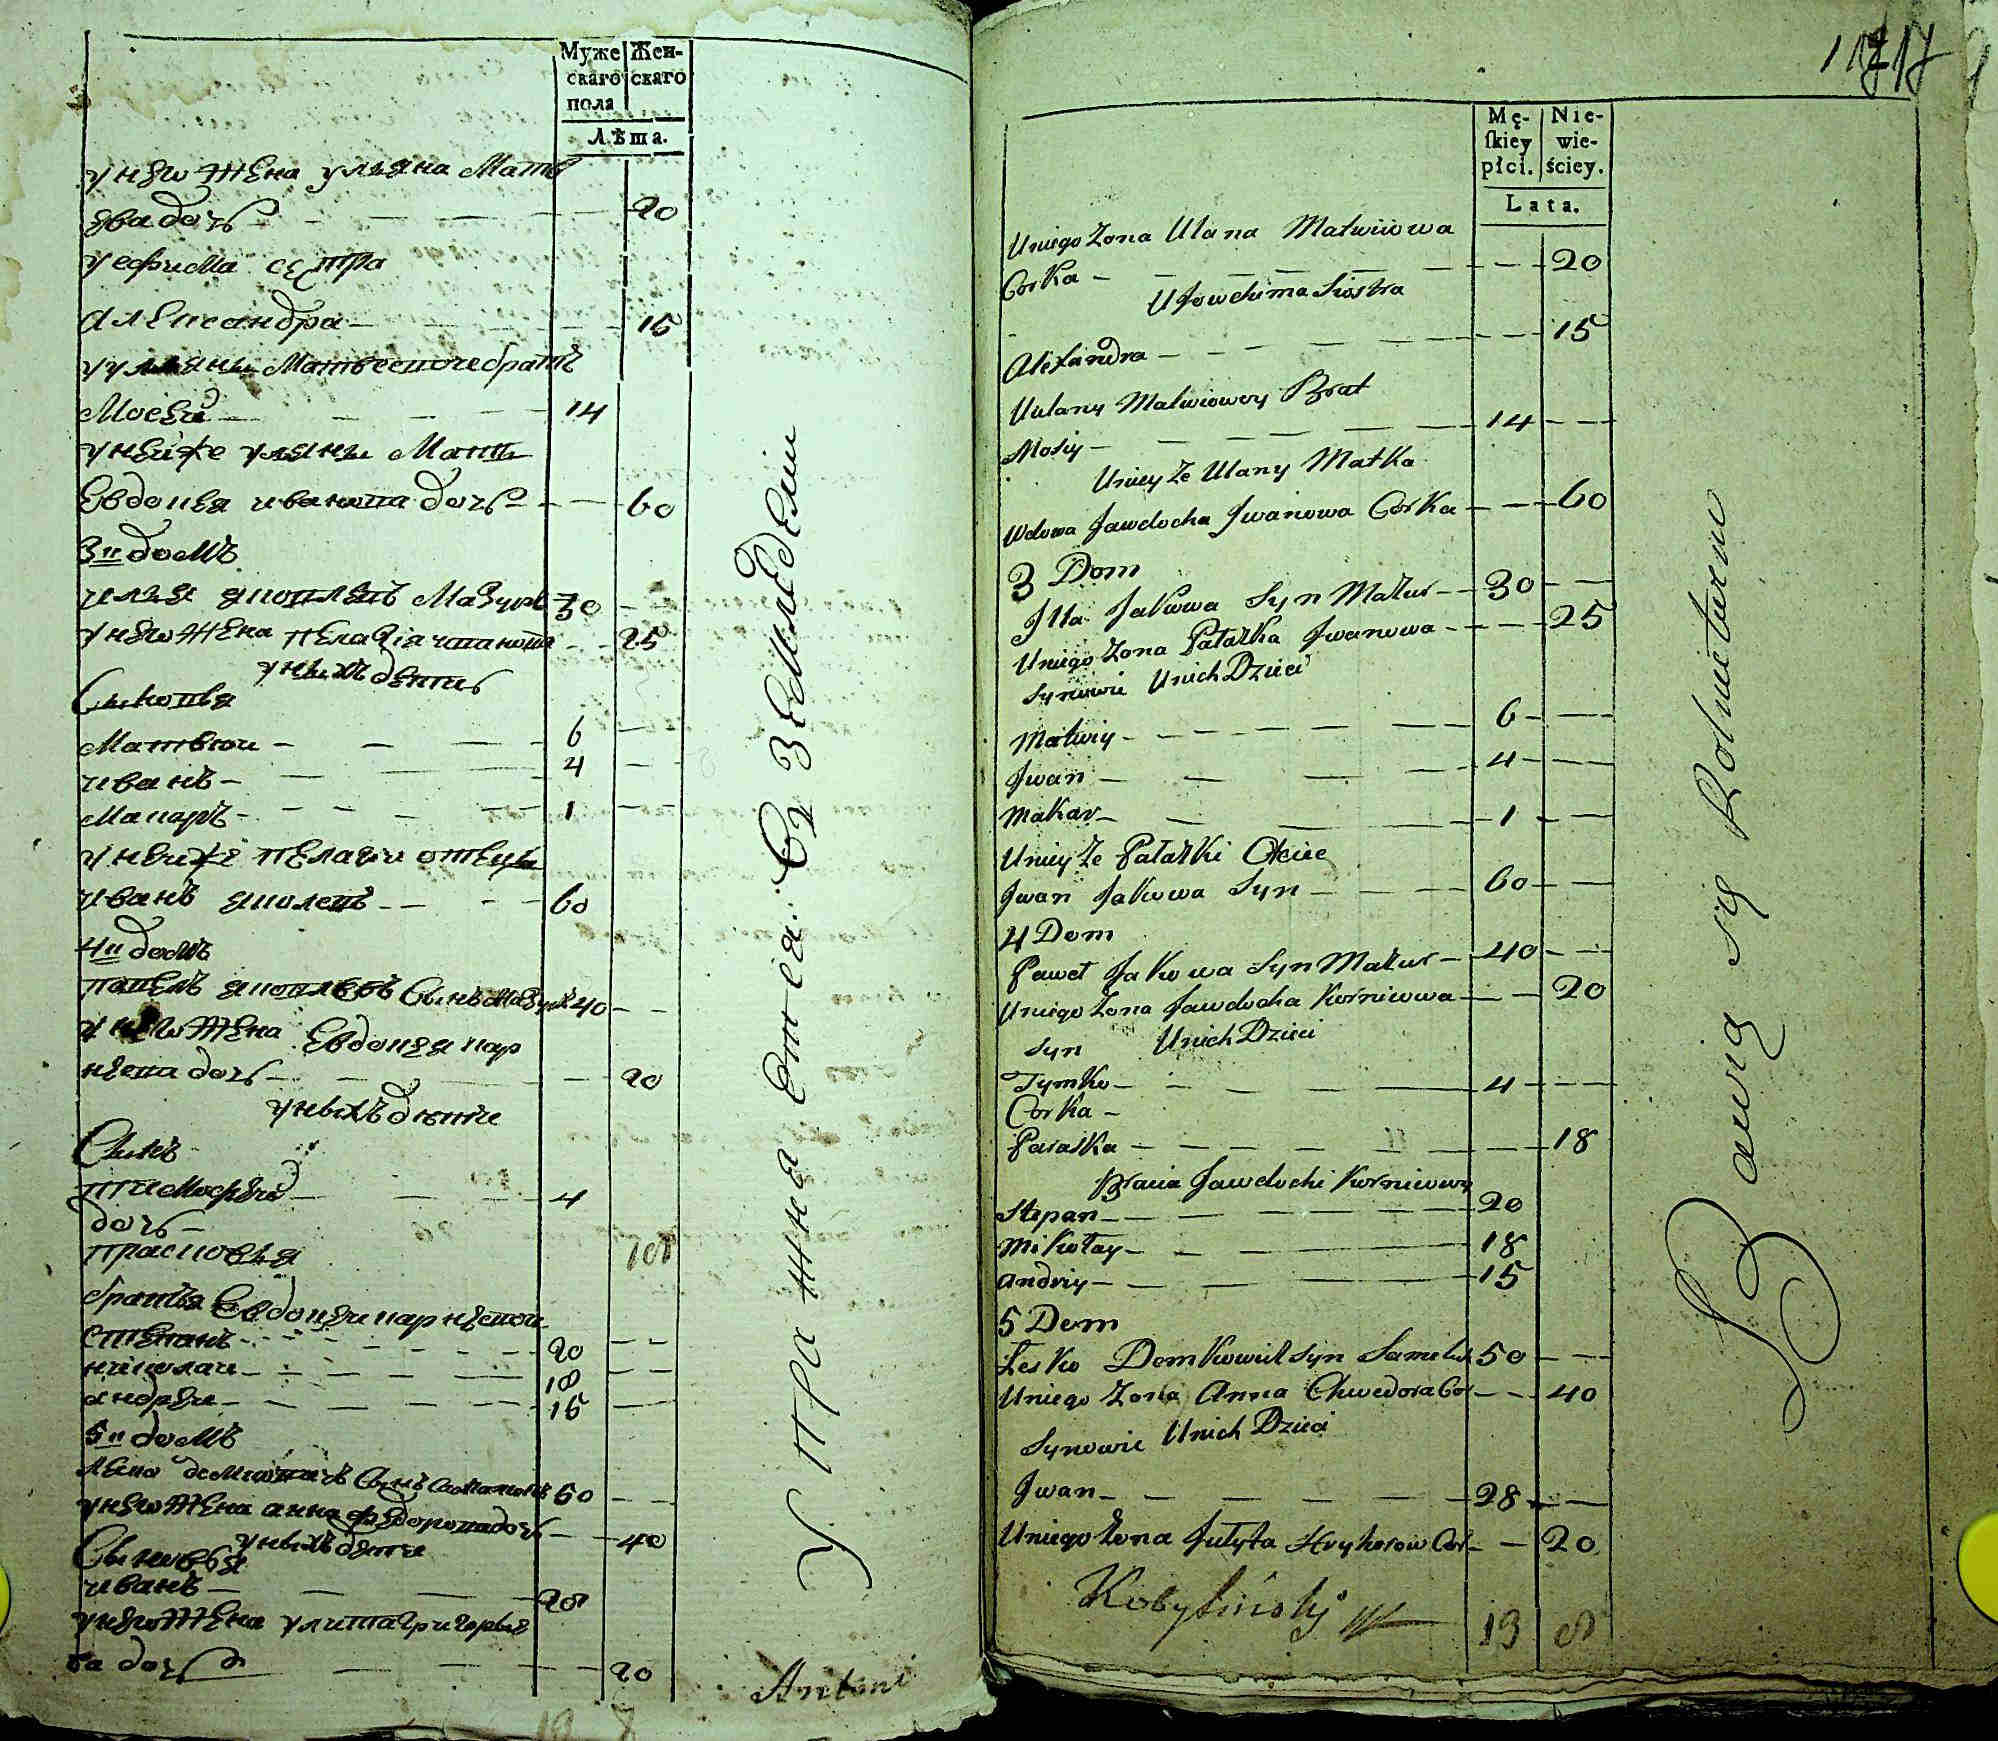 Муже Жен-
скаго скаго
пола
Лѣта.
у него жена ульяна Матв
ева дочь 20
у ефима сестра
александра 15
у ульяны Матвеевои братъ
Моѳеи 14
у неиже ульяны Мать
Евдокея иванова дочь 60
3й домъ
илья яковлевъ Мазуръ 30
у него жена пелагіа иванова 25
у ныхъ дети
Сыновья
Матвеи 6
иванъ 4
Макаръ 1
у неиже пелагии отецъ
иванъ яковлевъ 60
4й домъ
павелъ яковлевъ Сынъ Мазуръ 40
у него жена Евдокея кор
неева дочь 20
у ныхъ дѣти
Сынъ
тимофеи 4
дочь
прасковья 18
братья Евдокеи карнеевои
степанъ 20
николаи 18
андреи 15
5й домъ
леско демковичъ Сынъ 50
у него жена анна федорова дочь 40
у ныхъ дети
Сыновья
иванъ 28
у него жена улита григорье
ва дочь 20
Упражняются: въ земледелии
Antoni
19 8
1717
Mę- Nie-
ſkiey wie-
płci. ściey.
Lata.
Uniego Zona Ulana Matwiiowa
Corka 20
U Jowchima Siostra
Alexandra 15
Uulany Matwiowey Brat
Mosiy 14
Uniey Ze Ulany Matka
Wdowa Jawdocha Jwanowa Corka 60
3 Dom
Jlla Jakowa Syn Mazur 30
Uniego Zona Pałażka Jwanowa 25
Synowie Unich Dzieci
Matwiy 6
Jwan 4
Makar 1
Uniey Ze Pałażki Ociec
Jwan Jakowa Syn 60
4 Dom
Paweł Jakowa Syn Mazur 40
Uniego Zona Jawdocha Korniowa 20
Syn Unich Dzieci
Tymko 4
Corka
Paraska 18
Bracia Jawdochi Korniowey
Stepan 20
Mikołay 18
Andriy 15
5 Dom
Lesko Demkowicz Syn 50
Uniego Zona Anna Chwedora Cor 40
Synowie Unich Dzieci
Jwan 28
Uniego Zona Julyta Hryhorow Cor 20
Kobylinsky
19 8
Bawią się Rolnictwem